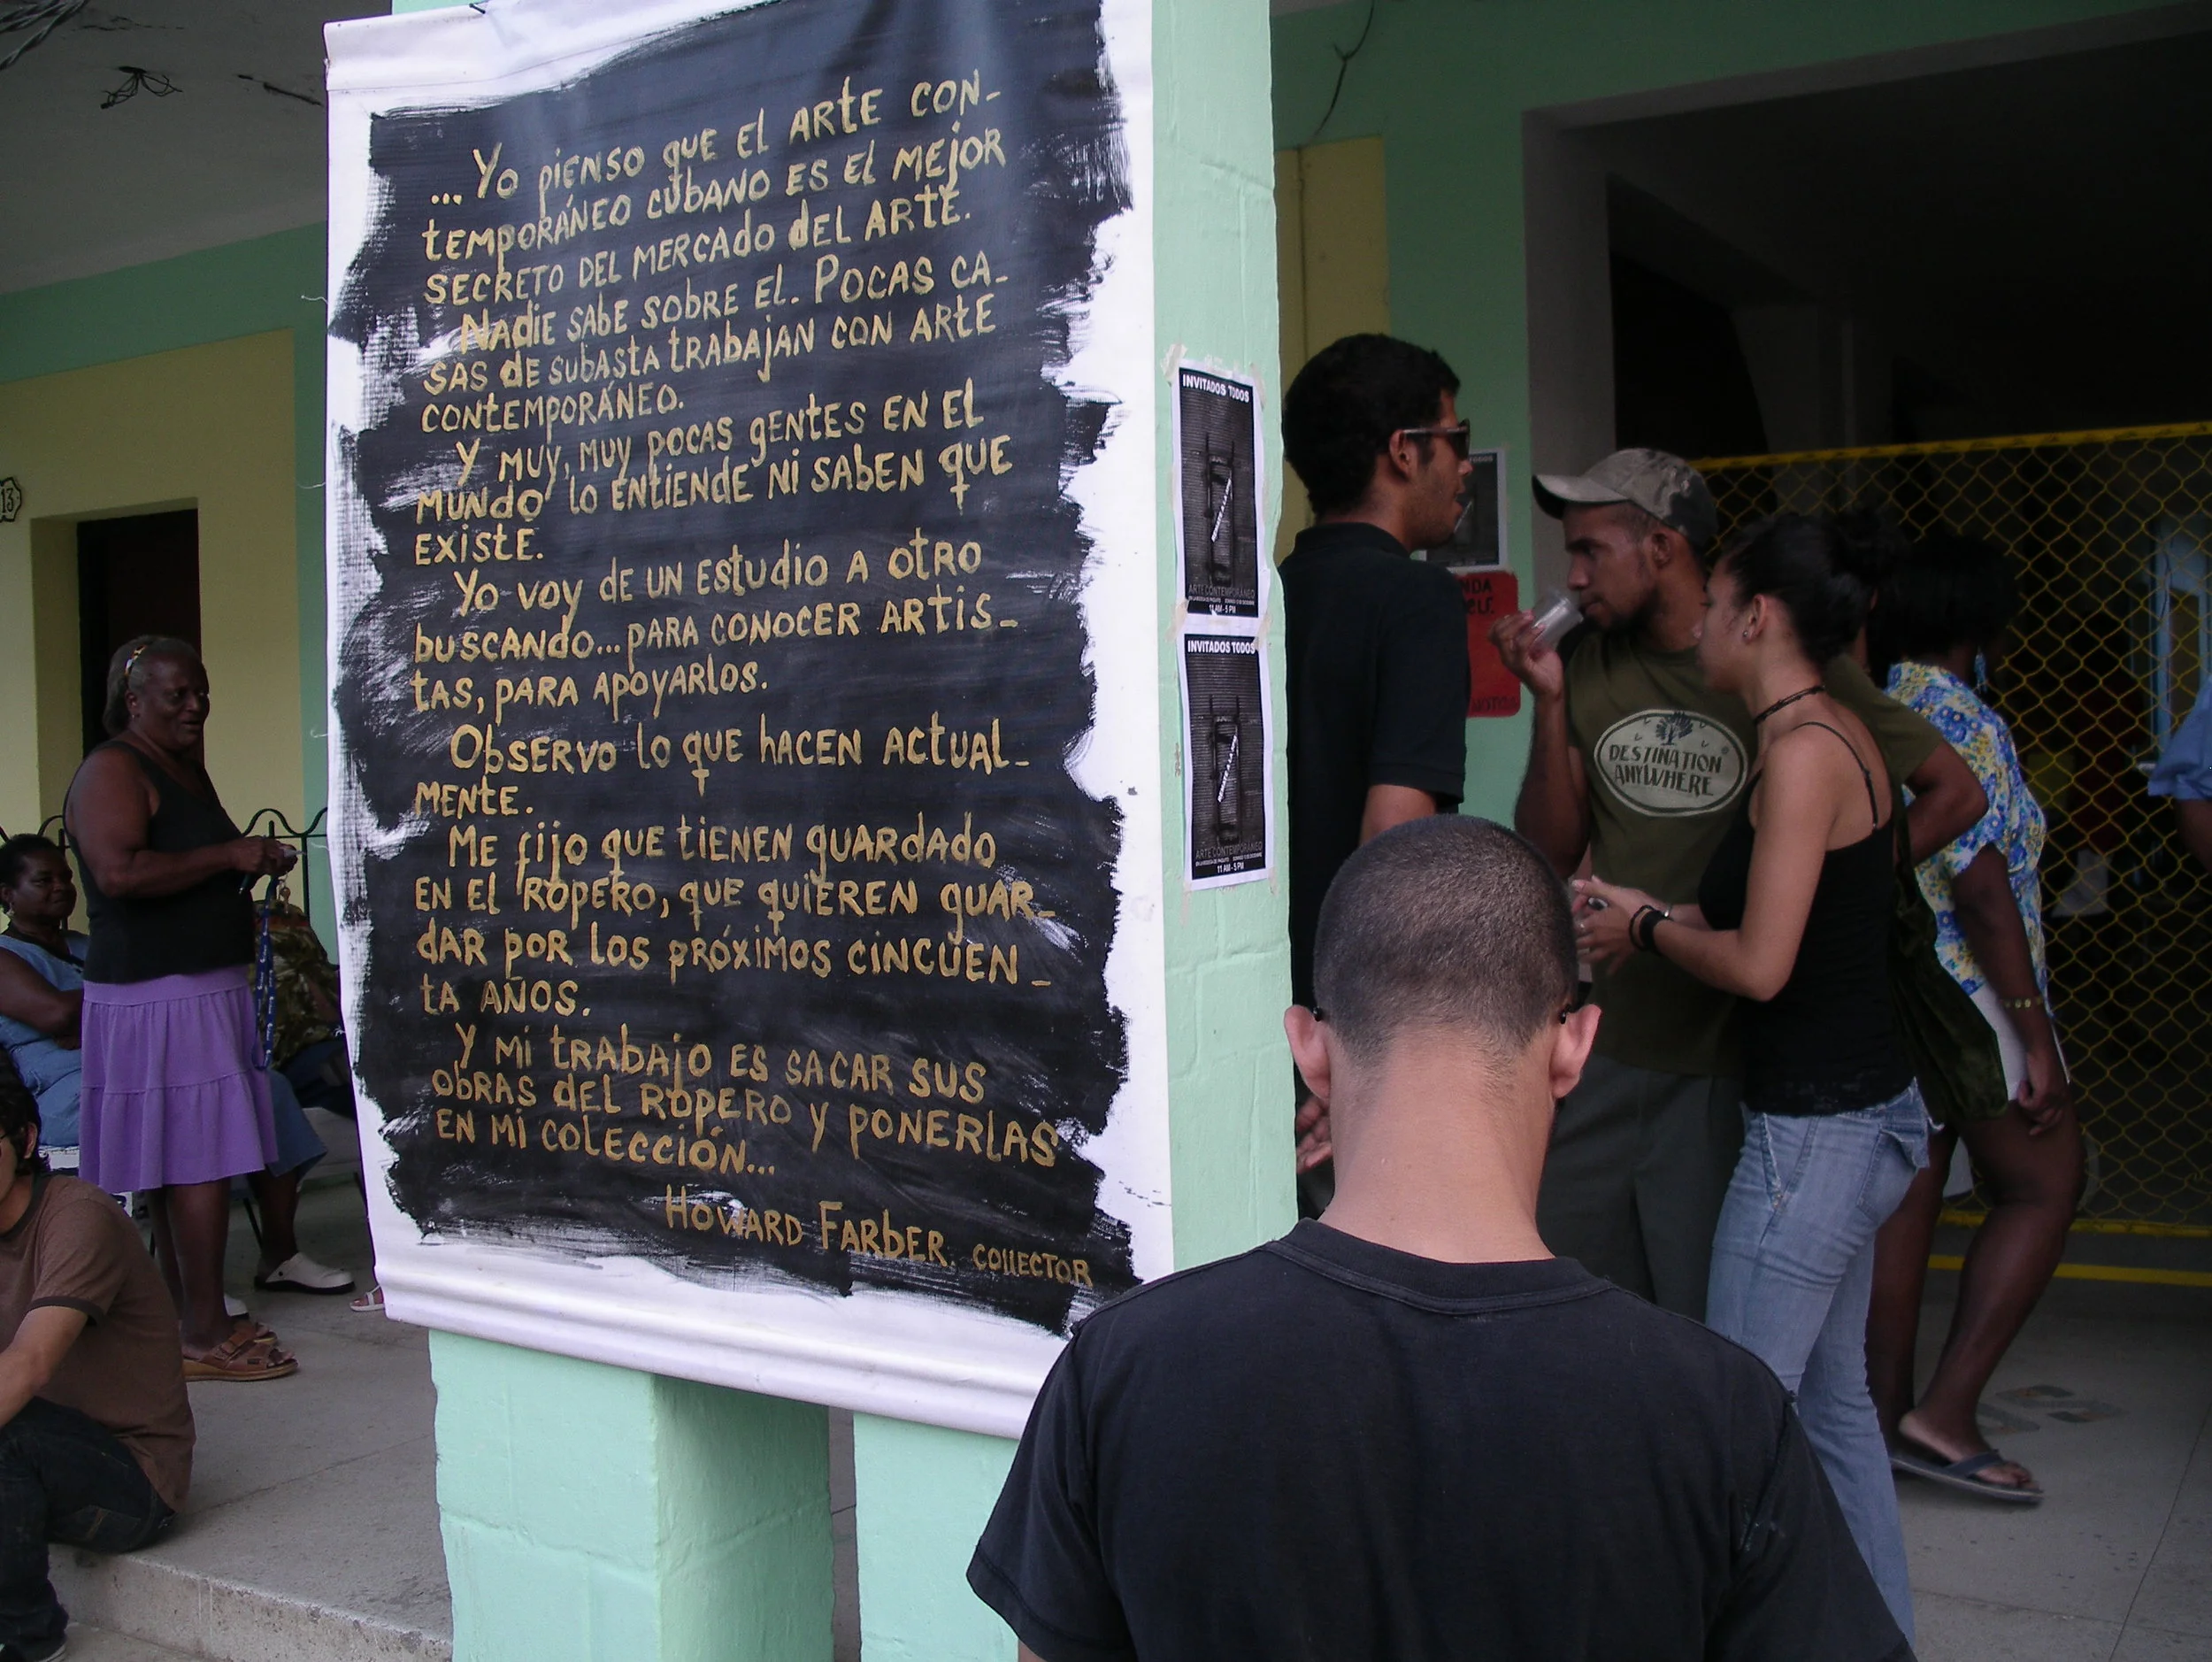 ... Yo pienso que el ARTE CON-
TEMPORÁNEO CUBANO ES El MEJOR
SECRETO DEL MERCADO dEL ARTE.
NADIE SABE SOBRE El. POCAS CA-
SAS dE SUBASTA TRABAJAN CON ARTE
CONTEMPORÁNEO.
Y MUY, MUY POCAS GENTES EN EL
MUNDO LO ENTIENDE NI SABEN QUE
EXISTE.
Yo voy DE UN ESTUDIO A OTRO
BUSCANDO... PARA CONOCER ARTIS-
TAS, PARA APOYARLOS.
OBSERVO lo QUE HACEN ACTUAL-
MENTE.
ME FIJO QUE TIENEN GUARDADO
EN El ROPERO, QUE QUIEREN GUAR-
DAR POR LOS PRÓXIMOS CINCUEN-
TA AÑOS.
Y MI TRABAJO ES SACAR SUS
OBRAS DEL ROPERO Y PONERLAS
EN MI COLECCIÓN...
HOWARD FARBER. COLLECTOR
INVITADOS TODOS
ARTE CONTEMPORÁNEO
11 AM - 5 PM
INVITADOS TODOS
ARTE CONTEMPORÁNEO
11 AM - 5 PM
DESTINATION
ANYWHERE
13